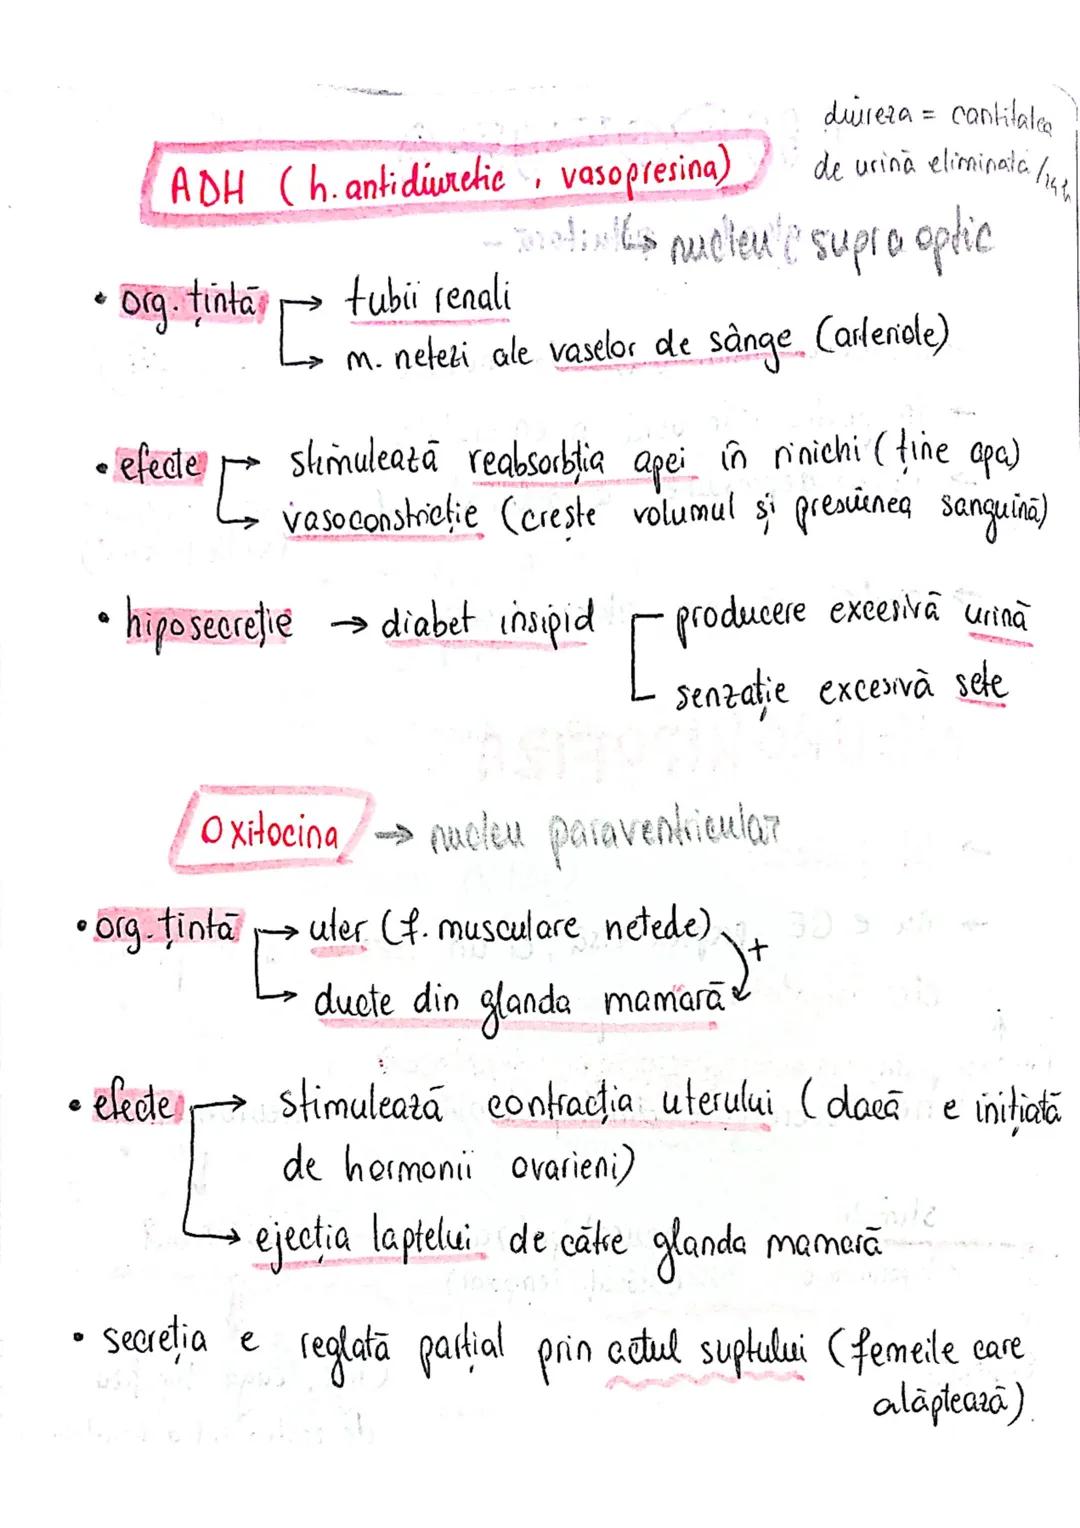 diureza = cantitatea
de urină eliminată /24h
ADH (h. antidiuretic, vasopresina)
↳ nucleu supra optic
• org. țintă → tubii renali
→ m. netezi ale vaselor de sânge (arteriole)
• efecte → stimulează reabsorbția apei în rinichi (ține apa)
→ vasoconstricție (crește volumul și presiunea sanguină)
• hiposecreție → diabet insipid - producere excesivă urină
- senzație excesivă sete
Oxitocina → nucleu paraventricular
• org. țintă → uter (f. musculare netede)
+
→ ducte din glanda mamară
• efecte → stimulează contracția uterului (dacă e inițiată
de hormonii ovarieni)
→ ejecția laptelui de către glanda mamară
• secreția e reglată parțial prin actul suptului (femeile care
alăptează)